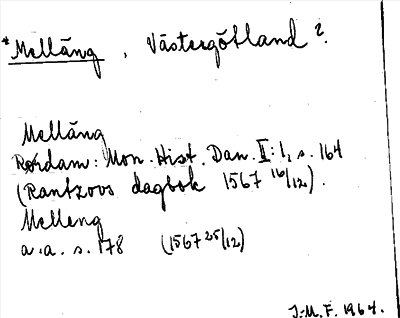 *Mellång, Västergötland?
Mellång
Rørdam: Mon. Hist. Dan. II:1, s. 164
(Rantzovs dagbok 1567 16/12).
Melleng
a.a. s. 178 (1567 25/12)
J.M.F. 1964.